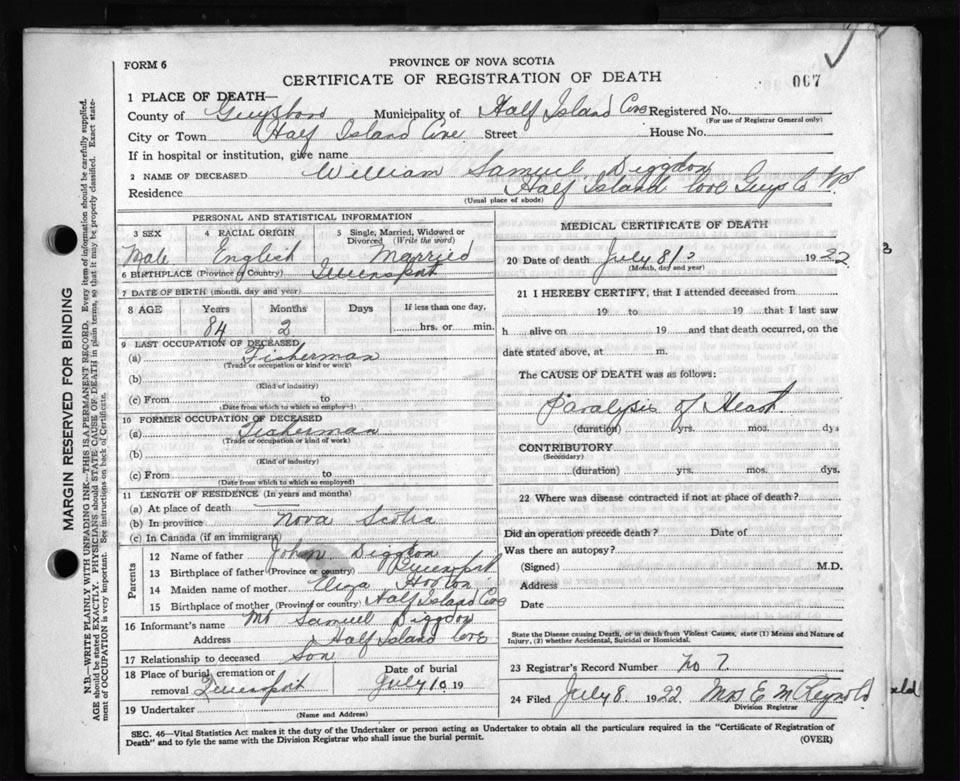 FORM 6
PROVINCE OF NOVA SCOTIA
CERTIFICATE OF REGISTRATION OF DEATH
007
1 PLACE OF DEATH—
County of Guysboro Municipality of Half Island Cove Registered No.
(For use of Registrar General only)
City or Town Half Island Cove Street House No.
If in hospital or institution, give name
2 NAME OF DECEASED William Samuel Diggdon
Residence Half Island Cove Guys Co NS
(Usual place of abode)
PERSONAL AND STATISTICAL INFORMATION
3 SEX 4 RACIAL ORIGIN 5 Single, Married, Widowed or Divorced (Write the word)
Male English Married
6 BIRTHPLACE (Province or Country) Queensport
7 DATE OF BIRTH (month, day and year)
8 AGE Years Months Days If less than one day,
84 2 hrs. or min.
9 LAST OCCUPATION OF DECEASED
(a) Fisherman
(Trade or occupation or kind or work)
(b)
(Kind of industry)
(c) From to
(Date from which to which so employed)
10 FORMER OCCUPATION OF DECEASED
(a) Fisherman
(Trade or occupation or kind of work)
(b)
(Kind of industry)
(c) From to
(Date from which to which so employed)
11 LENGTH OF RESIDENCE (In years and months)
(a) At place of death
(b) In province Nova Scotia
(c) In Canada (if an immigrant)
Parents
12 Name of father John Diggdon
13 Birthplace of father (Province or country) Queensport
14 Maiden name of mother Eliza Horton
15 Birthplace of mother (Province or country) Half Island Cove
16 Informant's name Mr Samuel Diggdon
Address Half Island Cove
17 Relationship to deceased Son
18 Place of burial, cremation or removal Queensport Date of burial July 10 19
19 Undertaker
(Name and Address)
MEDICAL CERTIFICATE OF DEATH
20 Date of death July 8/ 1922
(Month, day and year)
21 I HEREBY CERTIFY, that I attended deceased from
19 to 19 that I last saw
h alive on 19 and that death occurred, on the
date stated above, at m.
The CAUSE OF DEATH was as follows:
Paralysis of Heart
(duration) yrs. mos. dys
CONTRIBUTORY
(Secondary)
(duration) yrs. mos. dys.
22 Where was disease contracted if not at place of death?
Did an operation precede death? Date of
Was there an autopsy?
(Signed) M.D.
Address
Date
State the Disease causing Death, or in death from Violent Causes, state (1) Means and Nature of
Injury, (2) whether Accidental, Suicidal or Homicidal.
23 Registrar's Record Number No 7
24 Filed July 8 1922 Mrs E M Reynold
Division Registrar
SEC. 46—Vital Statistics Act makes it the duty of the Undertaker or person acting as Undertaker to obtain all the particulars required in the "Certificate of Registration of
Death" and to fyle the same with the Division Registrar who shall issue the burial permit.
(OVER)
MARGIN RESERVED FOR BINDING
N.B.—WRITE PLAINLY WITH UNFADING INK—THIS IS A PERMANENT RECORD. Every item of information should be carefully supplied.
AGE should be stated EXACTLY. PHYSICIANS should STATE CAUSE OF DEATH in plain terms, so that it may be properly classified. Exact state-
ment of OCCUPATION is very important. See instructions on back of Certificate.